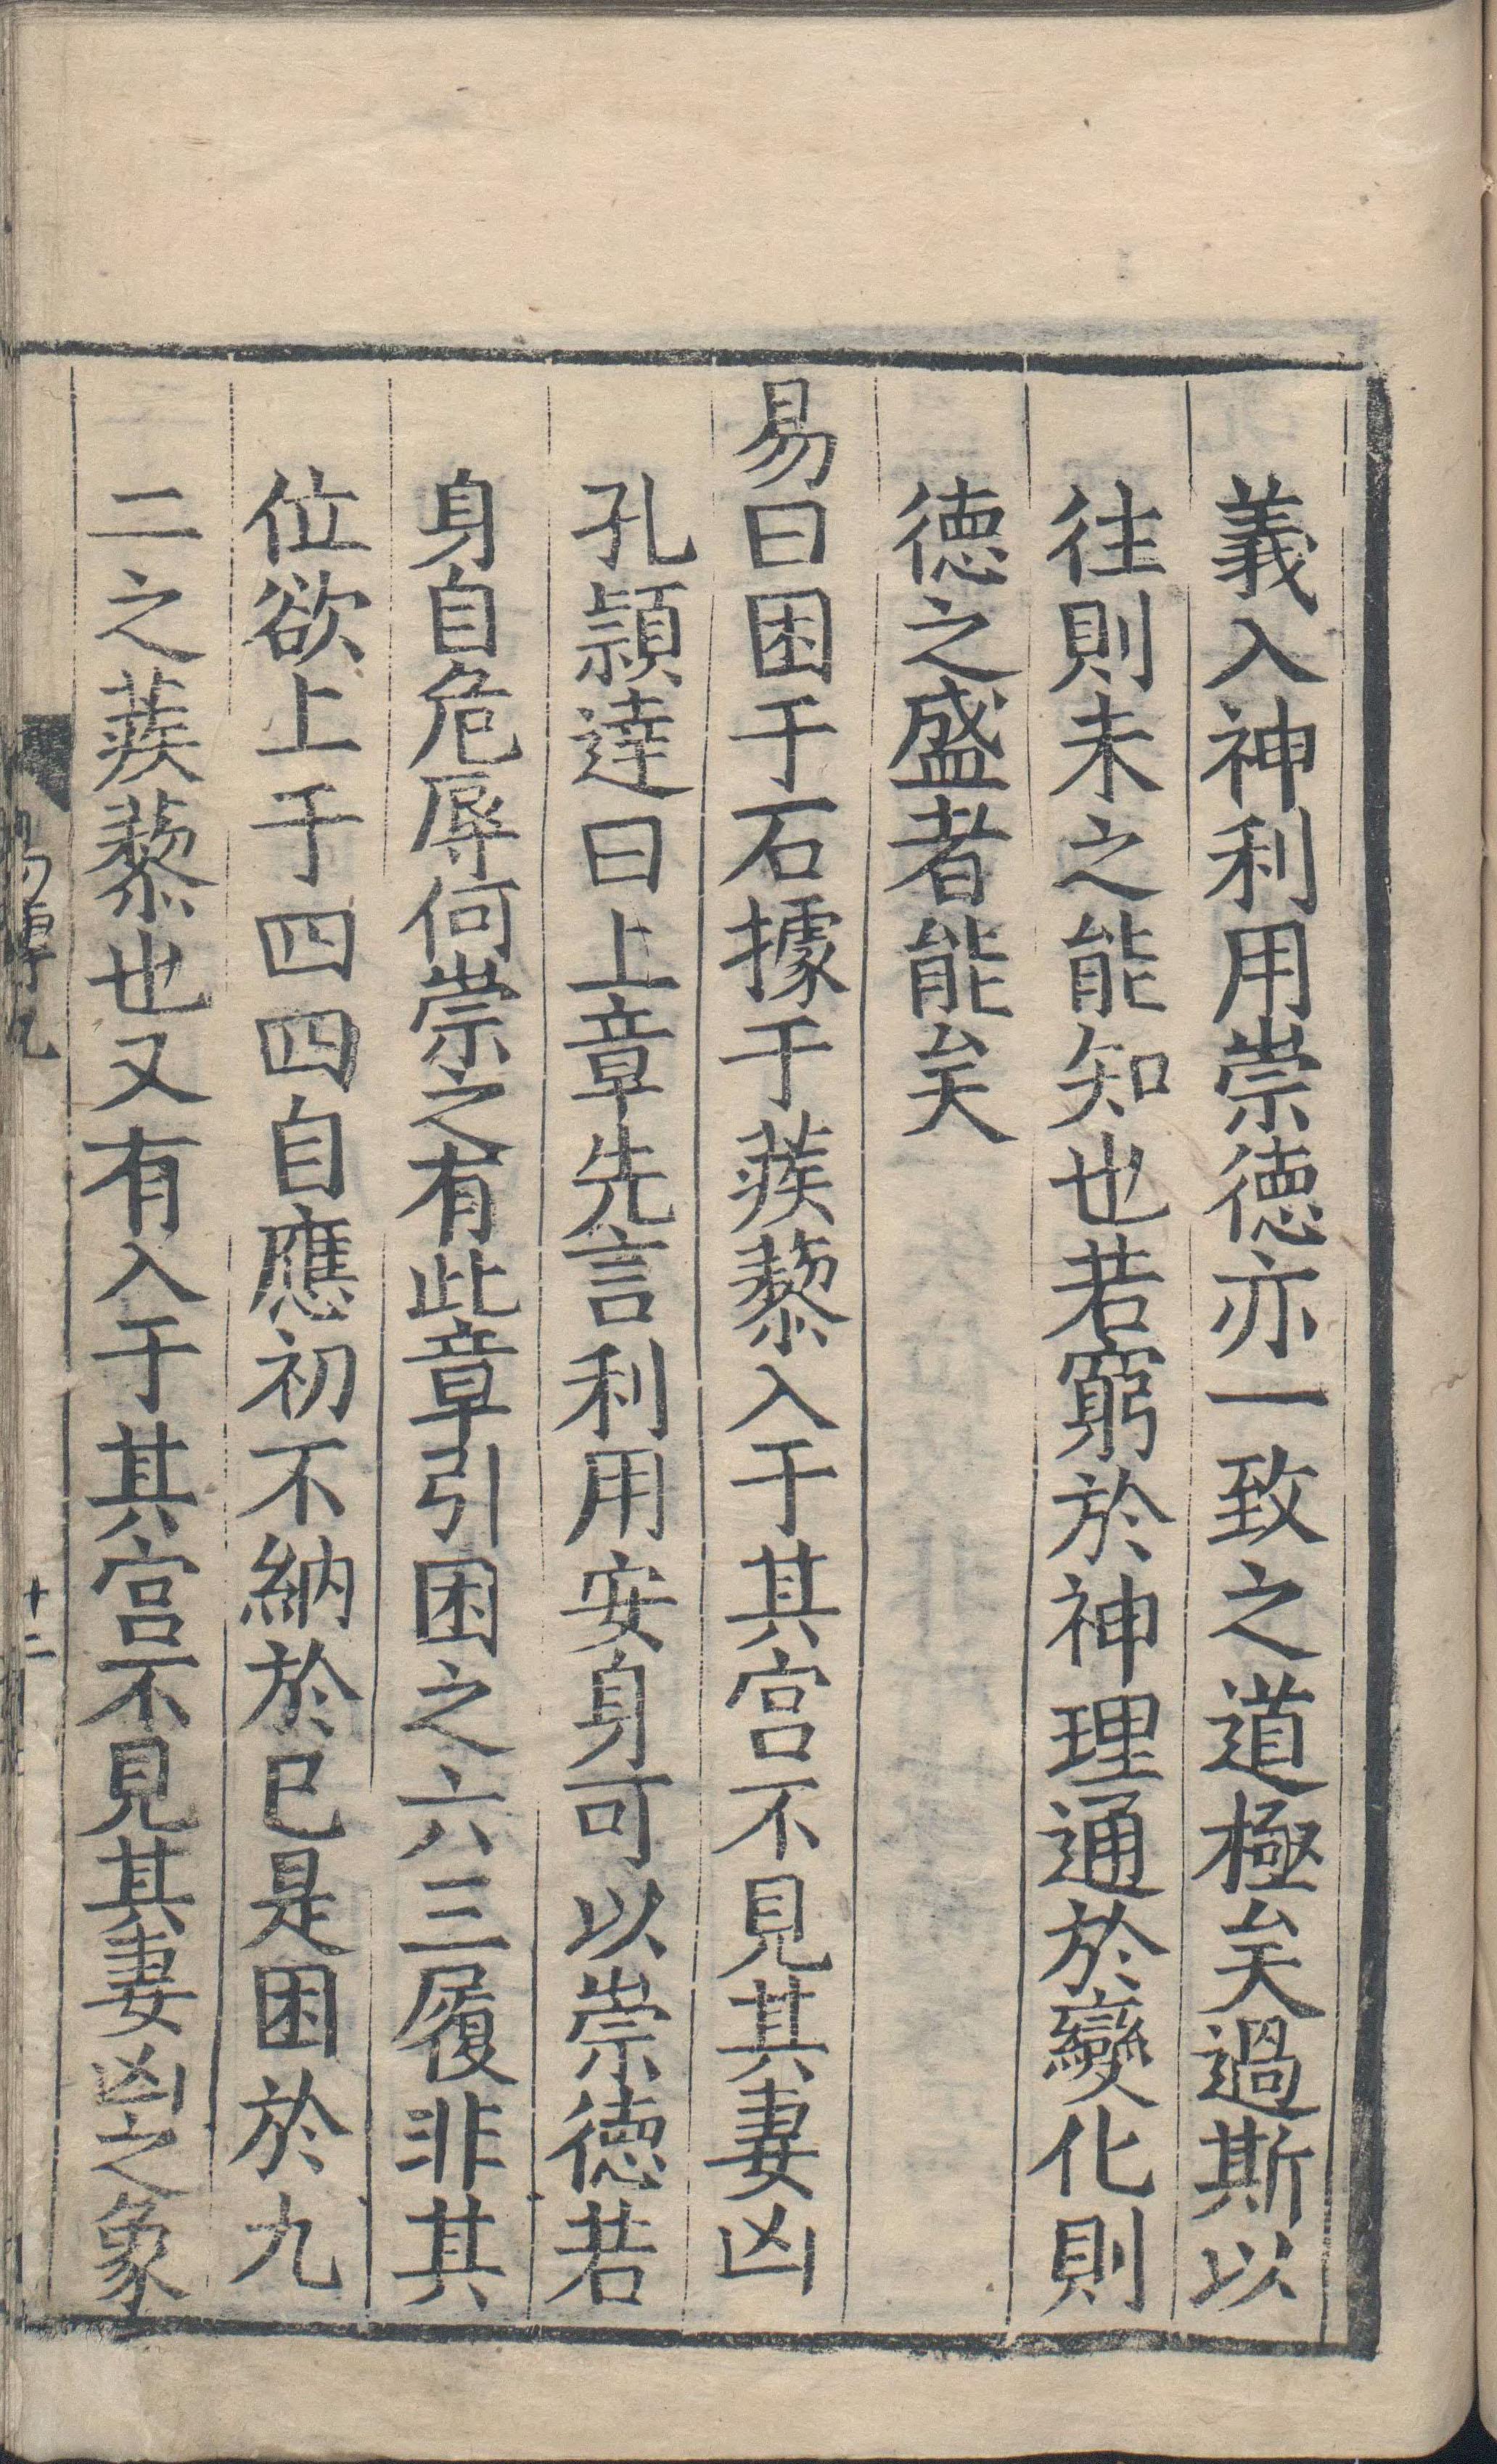 義入神利用崇德亦一致之道極矣過斯以
往則未之能知也若窮於神理通於變化則
德之盛者能矣
易曰困于石據于蒺藜入于其宫不見其妻凶
孔頴達曰上章先言利用安身可以崇德若
身自危辱何崇之有此章引困之六三履非其
位欲上于四四自應初不納於已是困於九
二之蒺藜也又有入于其宫不見其妻凶之象
十二